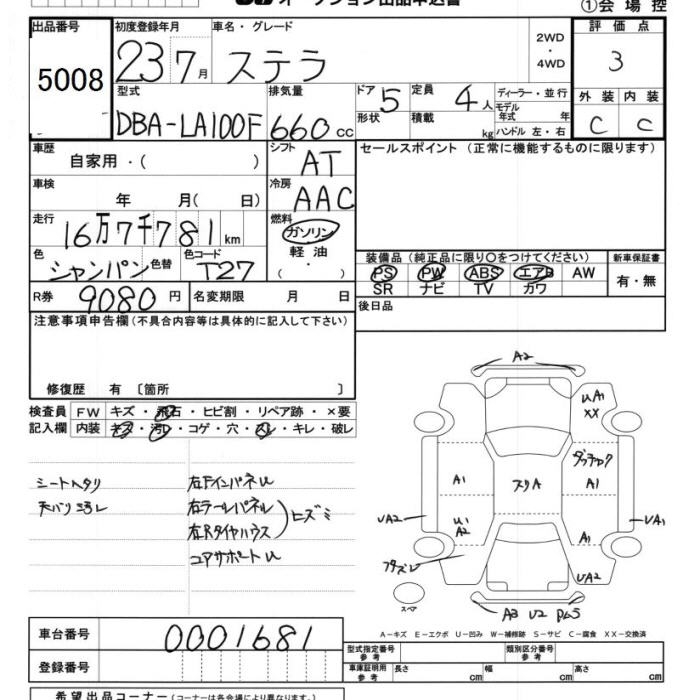 オークション出品申込書
①会場控
出品番号 初度登録年月 車名・グレード 2WD・4WD 評価点
5008 23 7月 ステラ 3
型式 排気量 ドア 5 定員 4人 ディーラー・並行 外装 内装
DBA-LA100F 660 cc 形状 積載 kg モデル年式 年 ハンドル 左・右 C C
車歴 自家用・( ) シフト AT セールスポイント (正常に機能するものに限ります)
車検 年 月( 日) 冷房 AAC
走行 16万7千781km 燃料 ガソリン 軽油 ・( )
色 シャンパン 色替 色コード T27
装備品 (純正品に限り○をつけてください) 新車保証書
PS PW ABS エアB AW 有・無
SR ナビ TV カワ
R券 9080円 名変期限 月 日 後日品
注意事項申告欄 (不具合内容等は具体的に記入して下さい)
修復歴 有 〔箇所 〕
検査員 FW キズ・飛石・ヒビ割・リペア跡・×要
記入欄 内装 キズ・汚レ・コゲ・穴・スレ・キレ・破レ
シートヘタリ 左FインパネU
天バリ汚レ 右テールパネル
左Rタイヤハウス ヒズミ
コアサポートU
A2
UA1
XX
ダッチャク
A1 スリA A1
UA2 U1 A2 UA1
A1
フタズレ UA2
スペア
A3 U2
A-キズ E-エクボ U-凹み W-補修跡 S-サビ C-腐食 XX-交換済
車台番号 0001681
型式指定番号 参考 類別区分番号 参考
登録番号 車庫証明用 参考 長さ cm 幅 cm 高さ cm
希望出品コーナー (コーナーは各会場により異なります。)